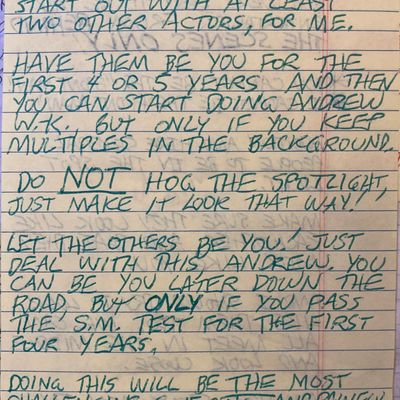 START OUT WITH AT LEAST
TWO OTHER ACTORS, FOR ME.
HAVE THEM BE YOU FOR THE
FIRST 4 OR 5 YEARS AND THEN
YOU CAN START DOING ANDREW
W.K., BUT ONLY IF YOU KEEP
MULTIPLES IN THE BACKGROUND.
DO NOT HOG THE SPOTLIGHT,
JUST MAKE IT LOOK THAT WAY!
LET THE OTHERS BE YOU! JUST
DEAL WITH THIS ANDREW. YOU
CAN BE YOU LATER DOWN THE
ROAD, BUT ONLY IF YOU PASS
THE S.M. TEST FOR THE FIRST
FOUR YEARS.
DOING THIS WILL BE THE MOST